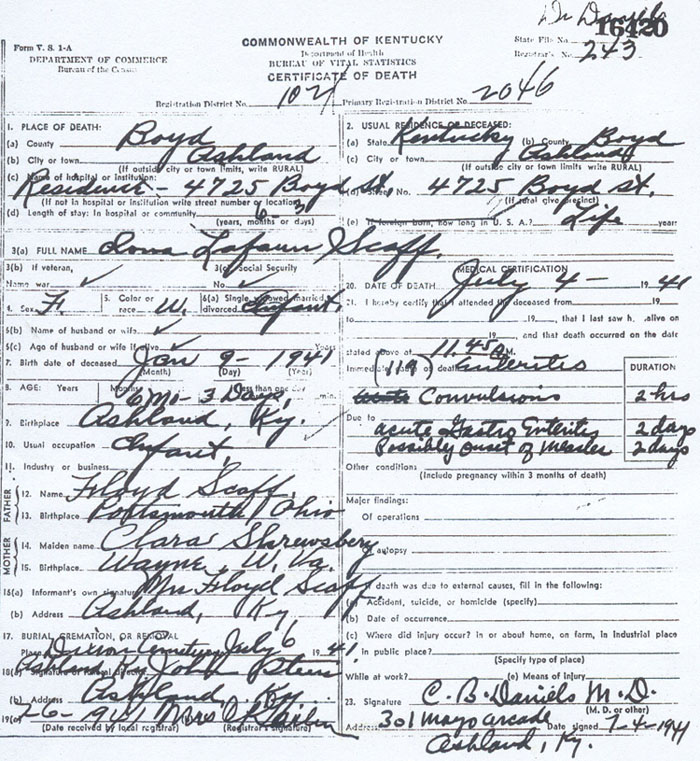 Dr Daniels
16420
Form V. S. 1-A
DEPARTMENT OF COMMERCE
Bureau of the Census
COMMONWEALTH OF KENTUCKY
Department of Health
BUREAU OF VITAL STATISTICS
CERTIFICATE OF DEATH
State File No.
Registrar's No. 243
Registration District No. 102 Primary Registration District No. 2046
1. PLACE OF DEATH:
(a) County Boyd
(b) City or town Ashland
(If outside city or town limits, write RURAL)
(c) Name of hospital or institution:
Residence - 4725 Boyd St,
(If not in hospital or institution write street number or location)
(d) Length of stay: In hospital or community 6-3
(years, months or days)
2. USUAL RESIDENCE OF DECEASED:
(a) State Kentucky (b) County Boyd
(c) City or town Ashland
(If outside city or town limits, write RURAL)
(d) Street No. 4725 Boyd St.
(If rural give precinct)
(e) If foreign born, how long in U. S. A.? Life years
3(a) FULL NAME Lafaun Scaff.
3(b) If veteran,
Name war
3(c) Social Security
No.
4. Sex F.
5. Color or
race W.
6(a) Single, widowed, married,
divorced Infant.
6(b) Name of husband or wife
6(c) Age of husband or wife if alive Years
7. Birth date of deceased Jan 9 - 1941
(Month) (Day) (Year)
8. AGE: Years Months Days If less than one day
6 Mo - 3 Days, min.
9. Birthplace Ashland, Ky.
10. Usual occupation Infant,
11. Industry or business
FATHER
12. Name Floyd Scaff.
13. Birthplace Portsmouth Ohio
MOTHER
14. Maiden name Clara Shrewsbery
15. Birthplace Wayne, W. Va.
16(a) Informant's own signature Mr Floyd Scaff,
(b) Address Ashland, Ky,
17. BURIAL, CREMATION, OR REMOVAL
Place Dixon Cemetery July 6 1941
18(a) Signature of funeral director
Ashland Ky John Steen
(b) Address Ashland, Ky.
19(a) 7-6-1941 Mrs
(Date received by local registrar) (Registrar's signature)
MEDICAL CERTIFICATION
20. DATE OF DEATH July 4 - 1941
21. I hereby certify that I attended the deceased from 19
to 19, that I last saw h. alive on
19, and that death occurred on the date
stated above at 11.45 A.M.
Immediate cause of death (119) Enteritis
DURATION
acute Convulsions 2 hrs
Due to
acute Gastro Enteritis 2 days
Possibly onset of Measles 2 days
Other conditions
(Include pregnancy within 3 months of death)
Major findings:
Of operations
Of autopsy
If death was due to external causes, fill in the following:
(a) Accident, suicide, or homicide (specify)
(b) Date of occurrence
(c) Where did injury occur? in or about home, on farm, in industrial place
in public place?
(Specify type of place)
While at work? (e) Means of injury
23. Signature C. B. Daniels M. D.
(M. D. or other)
Address 301 Mayo Arcade Date signed 7-4-1941
Ashland, Ky.